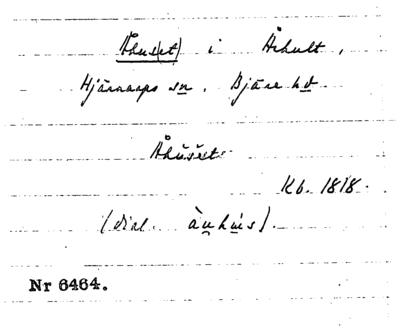 Åhus(et) i Århult,
Hjärnarps sn. Bjäre hd
Åhuset
Kb. 1818.
(dial. àu̯hu̇s).
Nr 6464.